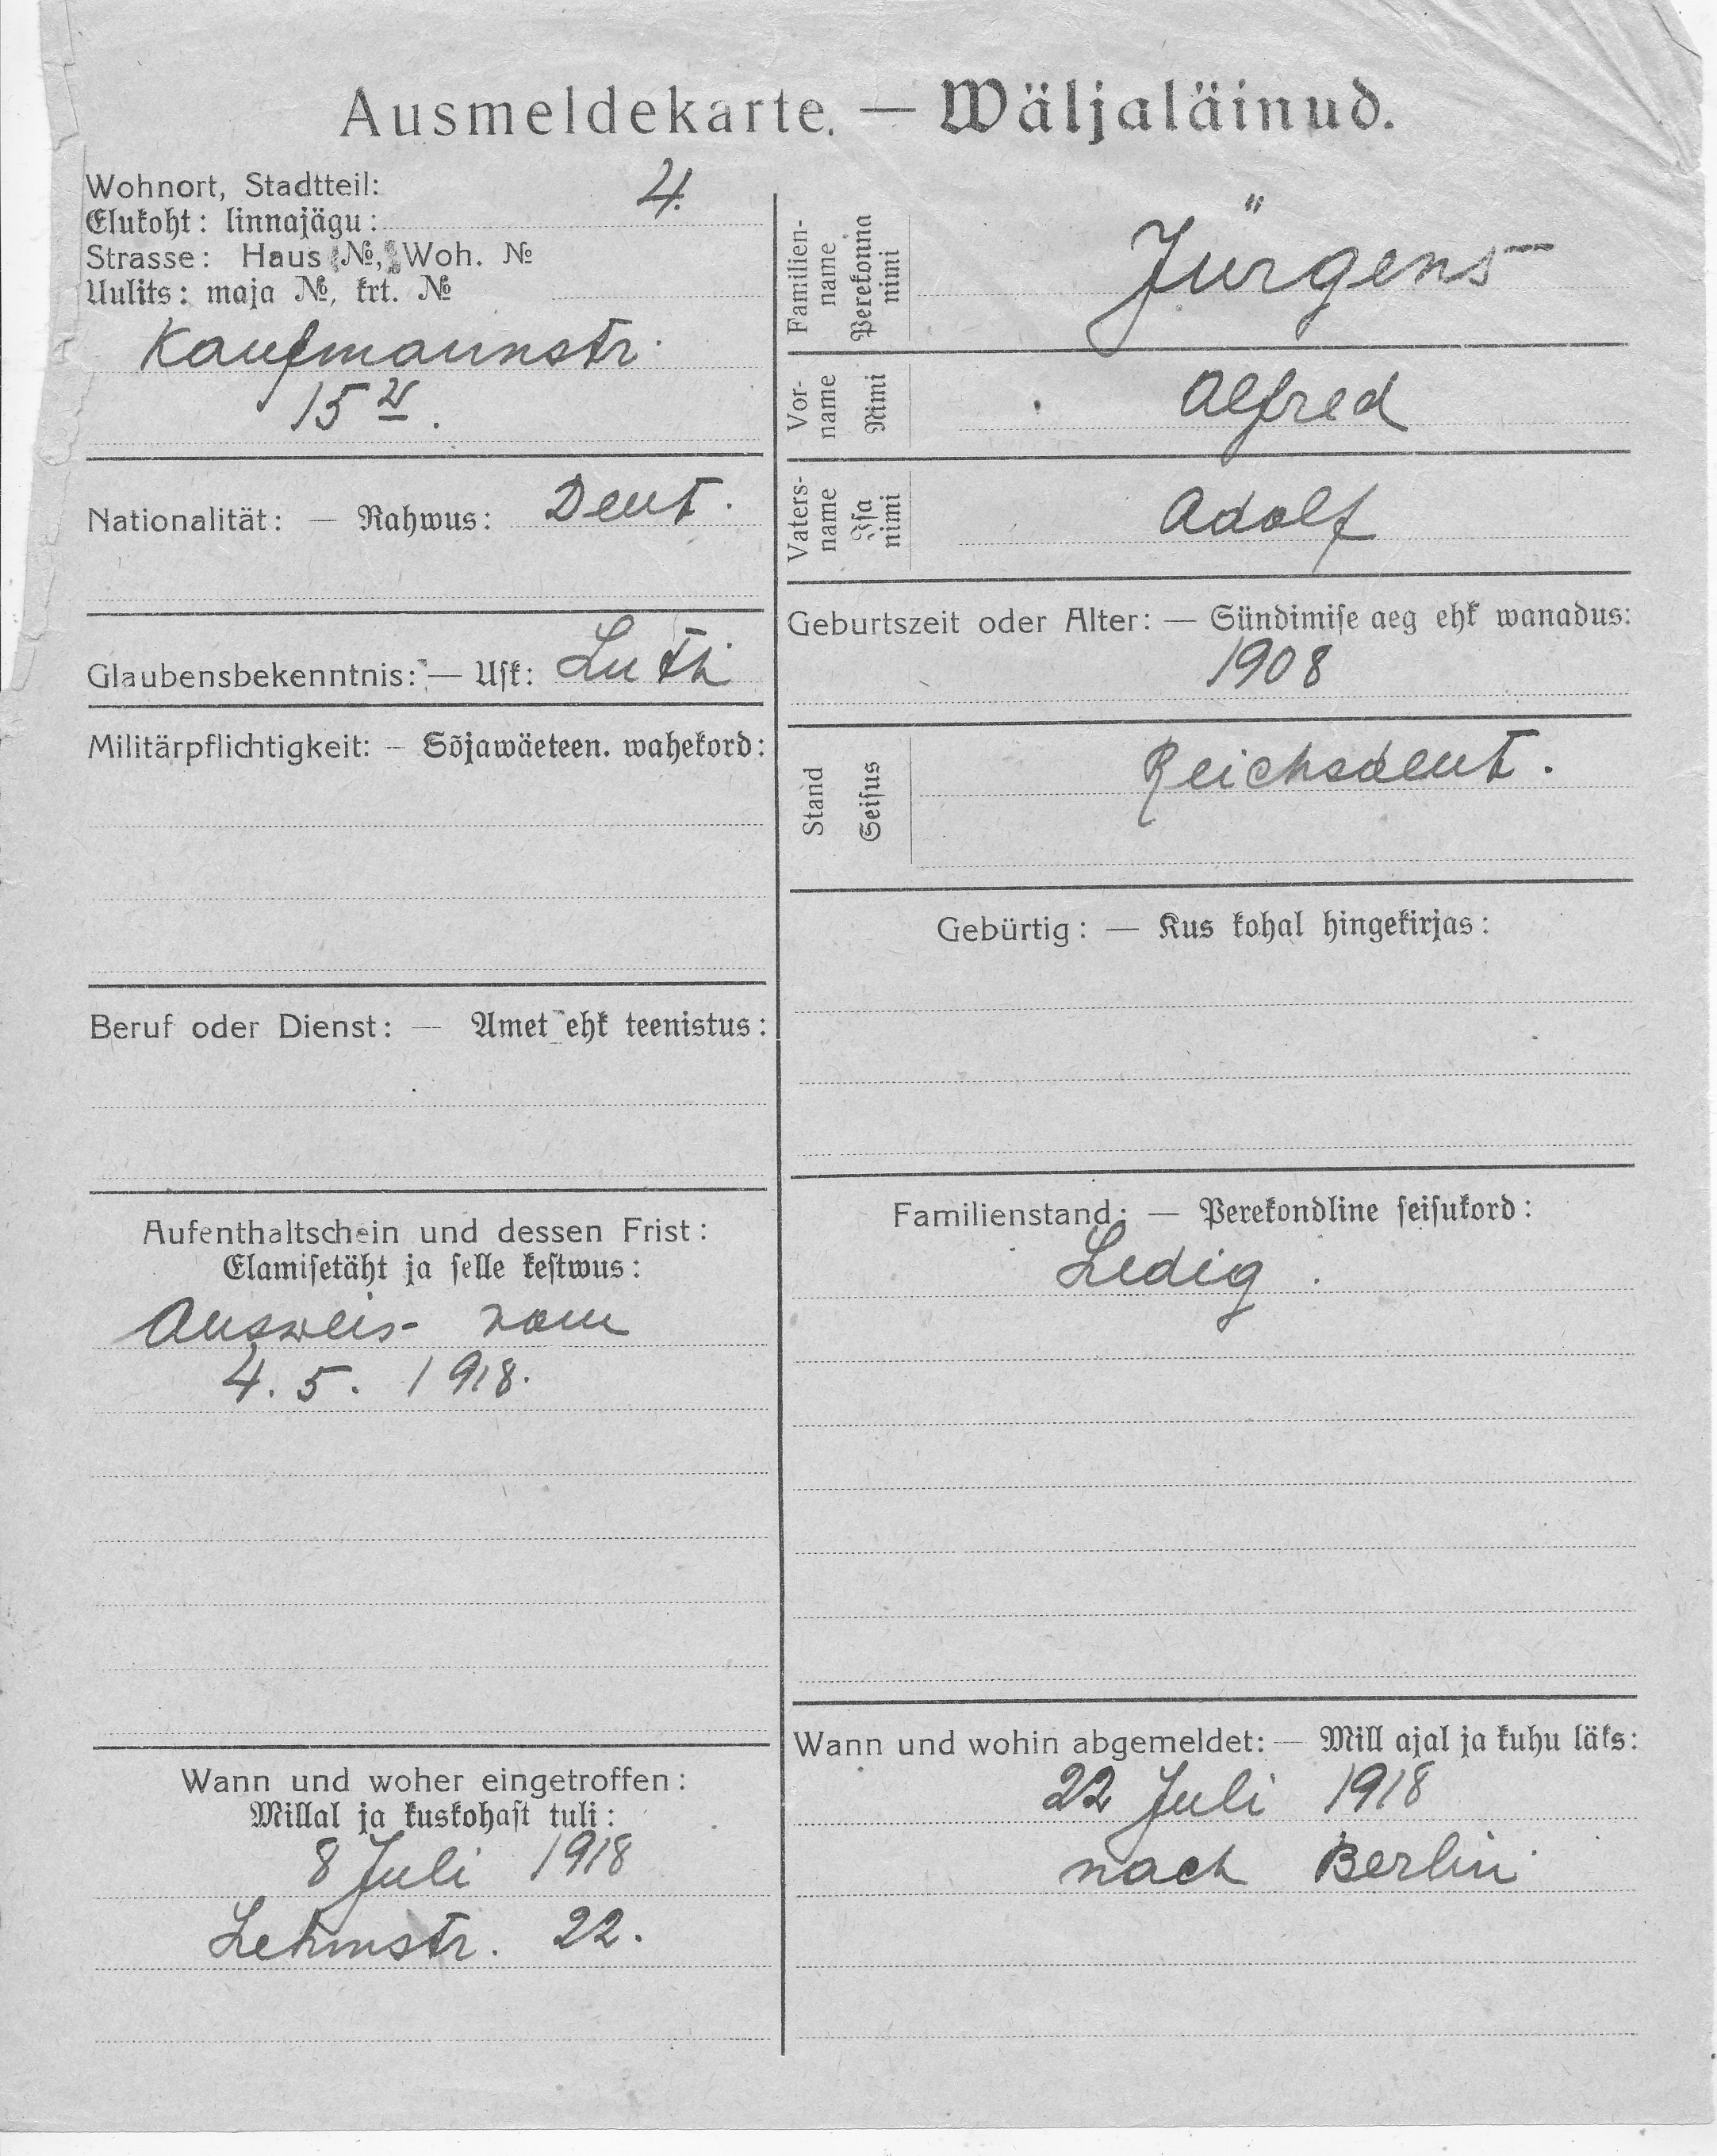 Ausmeldekarte. — Wäljaläinud.
Wohnort, Stadtteil:
Elukoht: linnajägu: 4.
Strasse: Haus №, Woh. №
Uulits: maja №, krt. №
Kaufmannstr.
15
Nationalität: — Rahwus: Deut.
Glaubensbekenntnis: — Usk: Luth
Militärpflichtigkeit: — Sõjawäeteen. wahekord:
Beruf oder Dienst: — Amet ehk teenistus:
Aufenthaltschein und dessen Frist:
Elamisetäht ja selle kestwus:
Ausweis vom
4. 5. 1918.
Wann und woher eingetroffen:
Millal ja kuskohast tuli:
8 Juli 1918
Lehmstr. 22.
Familien-
name
Perekonna
nimi
Jürgens
Vor-
name
Nimi
Alfred
Vaters-
name
Isa
nimi
Adolf
Geburtszeit oder Alter: — Sündimise aeg ehk wanadus:
1908
Stand
Seisus
Reichsdeut.
Gebürtig: — Kus kohal hingekirjas:
Familienstand: — Perekondline seisukord:
Ledig.
Wann und wohin abgemeldet: — Mill ajal ja kuhu läks:
22 Juli 1918
nach Berlin.